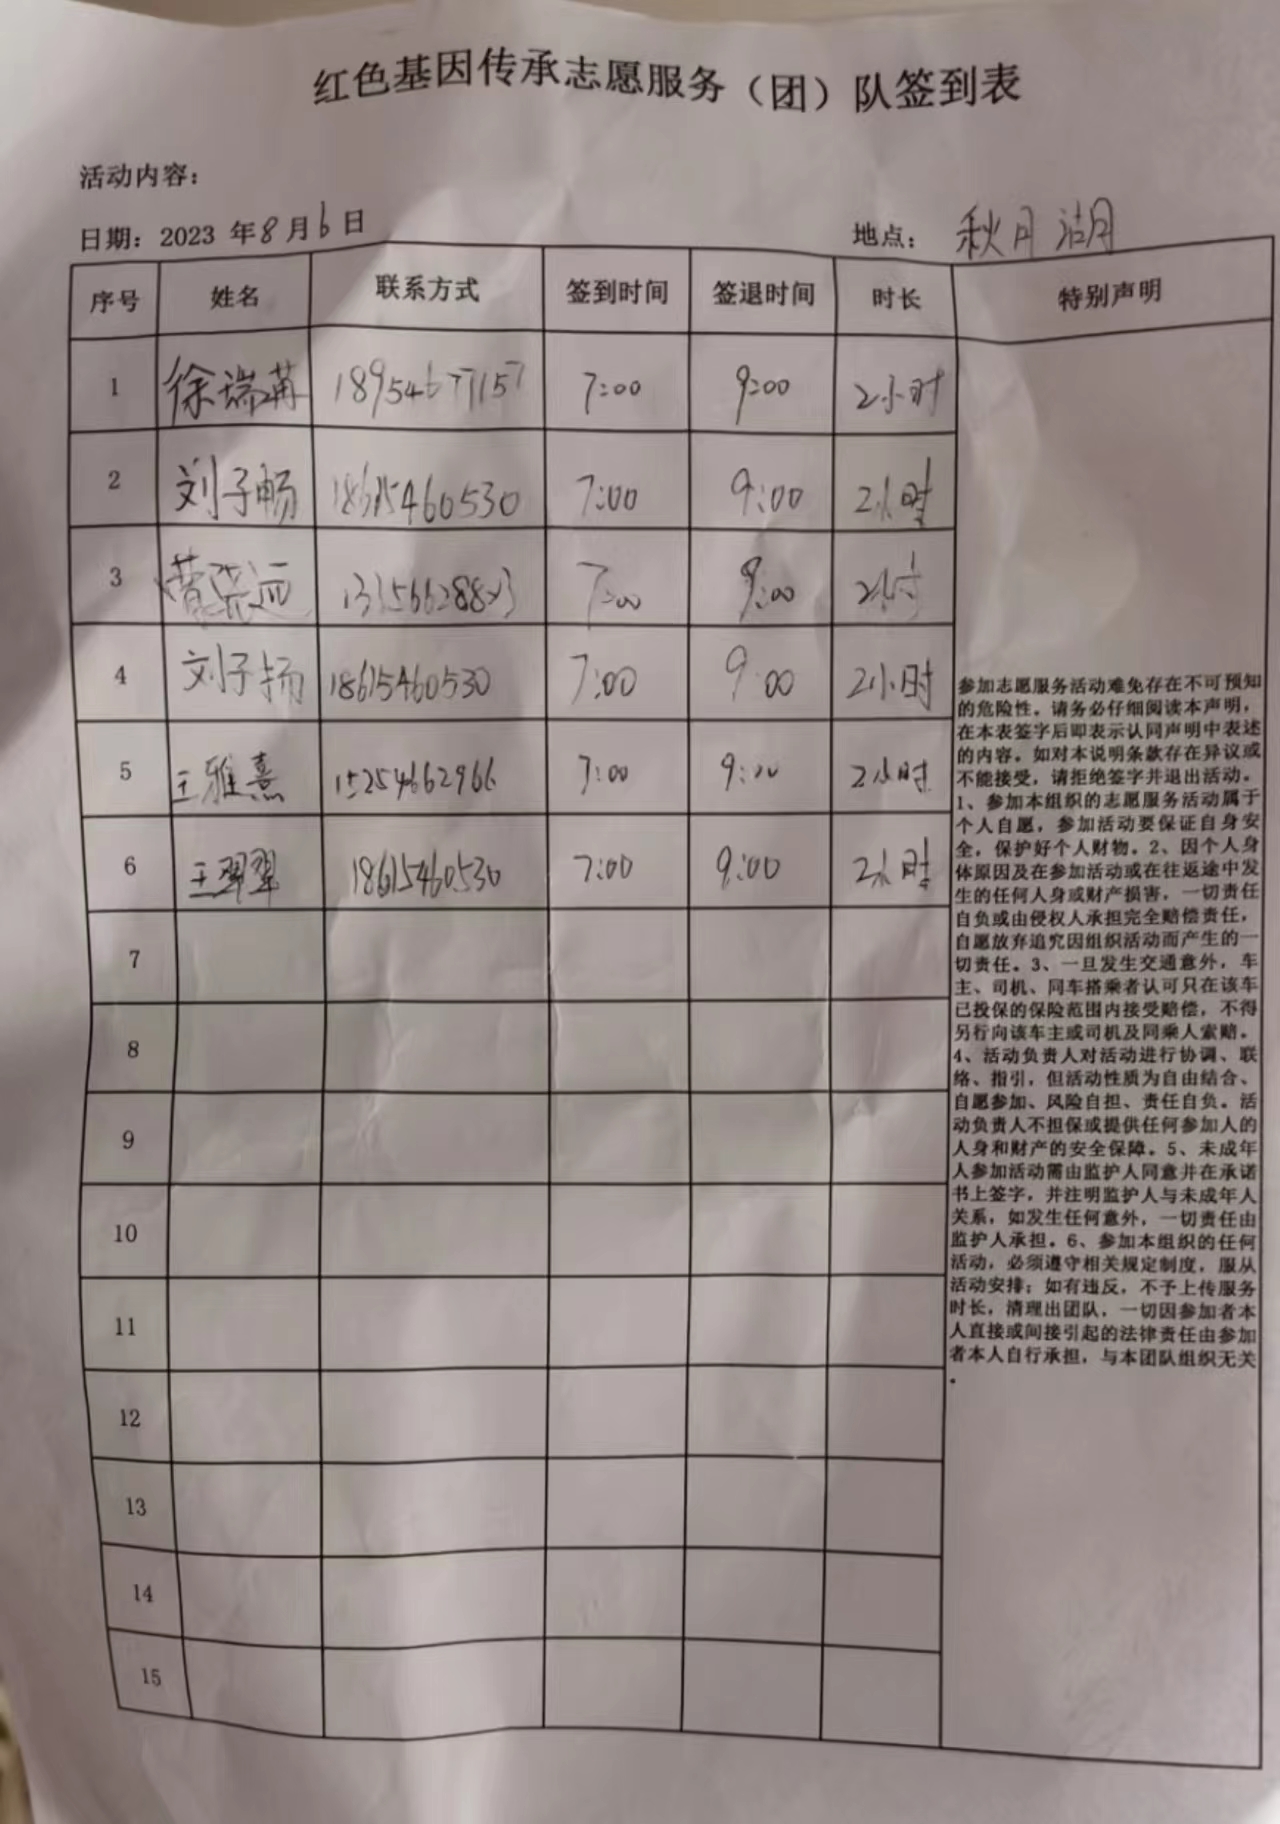 红色基因传承志愿服务（团）队签到表
活动内容：
日期：2023 年8月6日 地点：秋月湖
序号 姓名 联系方式 签到时间 签退时间 时长 特别声明
1 徐瑞苒 18954677157 7:00 9:00 2小时
2 刘子畅 18615460530 7:00 9:00 2小时
3 7:00 9:00 2小时
4 刘子扬 18615460530 7:00 9:00 2小时
5 王雅熹 15254662966 7:00 9:00 2小时
6 王翠翠 18615460530 7:00 9:00 2小时
7
8
9
10
11
12
13
14
15
参加志愿服务活动难免存在不可预知
的危险性。请务必仔细阅读本声明，
在本表签字后即表示认同声明中表述
的内容。如对本说明条款存在异议或
不能接受，请拒绝签字并退出活动。
1、参加本组织的志愿服务活动属于
个人自愿，参加活动要保证自身安
全，保护好个人财物。2、因个人身
体原因及在参加活动或在往返途中发
生的任何人身或财产损害，一切责任
自负或由侵权人承担完全赔偿责任，
自愿放弃追究因组织活动而产生的一
切责任。3、一旦发生交通意外，车
主、司机、同车搭乘者认可只在该车
已投保的保险范围内接受赔偿，不得
另行向该车主或司机及同乘人索赔。
4、活动负责人对活动进行协调、联
络、指引，但活动性质为自由结合、
自愿参加、风险自担、责任自负。活
动负责人不担保或提供任何参加人的
人身和财产的安全保障。5、未成年
人参加活动需由监护人同意并在承诺
书上签字，并注明监护人与未成年人
关系，如发生任何意外，一切责任由
监护人承担。6、参加本组织的任何
活动，必须遵守相关规定制度，服从
活动安排；如有违反，不予上传服务
时长，清理出团队，一切因参加者本
人直接或间接引起的法律责任由参加
者本人自行承担，与本团队组织无关
。